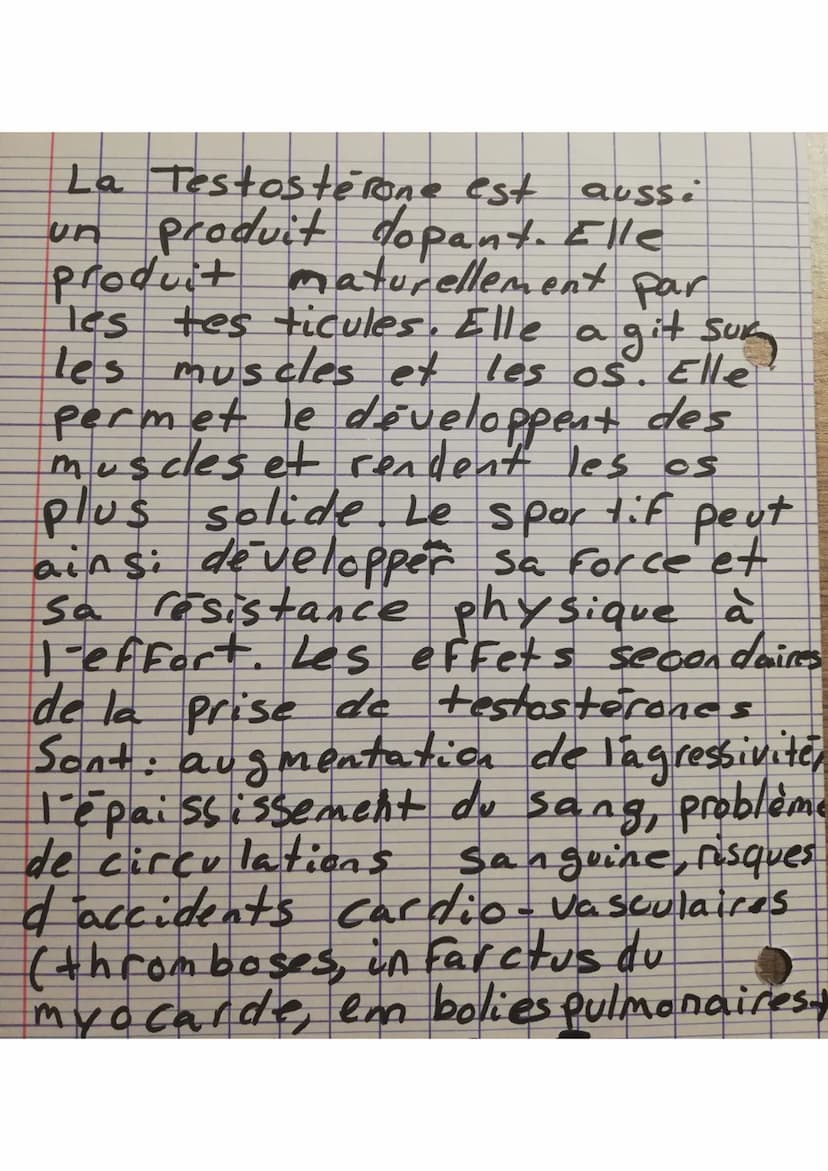 La Testostérone est aussi
un produit dopant. Elle
produit maturellement par
les tes ticules. Elle agit sur
les muscles et les os. Elle
permet le développent des
muscles et rendent les os
plus solide. Le sportif peut
ainsi développer sa force et
sa résistance physique à
l'effort. Les effets secondaires
de la prise de testostérones
Sont : augmentation de l'agressivité,
l'épaississement du sang, problème
de circulations sanguine, risques
d'accidents cardio-vasculaires
(thromboses, infarctus du
myocarde, embolies pulmonaires)